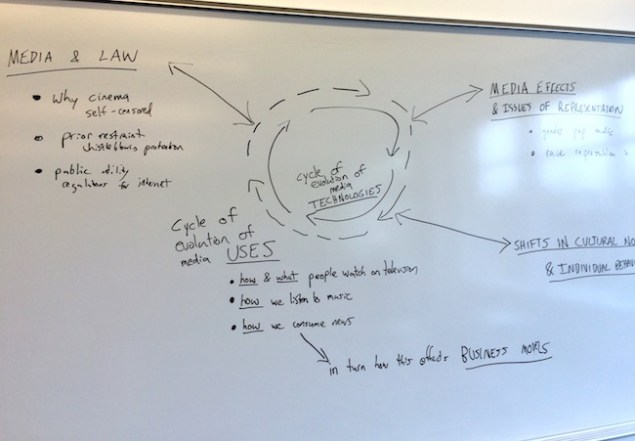 MEDIA & LAW
• Why cinema
self-censored
• prior restraint
protection
• public utility
regulations for internet
cycle of
evolution of
media
TECHNOLOGIES
Cycle of
evolution of
media USES
• how & what people watch on television
• how we listen to music
• how we consume news
in turn how this affects BUSINESS MODELS
MEDIA EFFECTS
& ISSUES OF REPRESENTATION
• gender
• race
SHIFTS IN CULTURAL NO
& INDIVIDUAL BEHAV